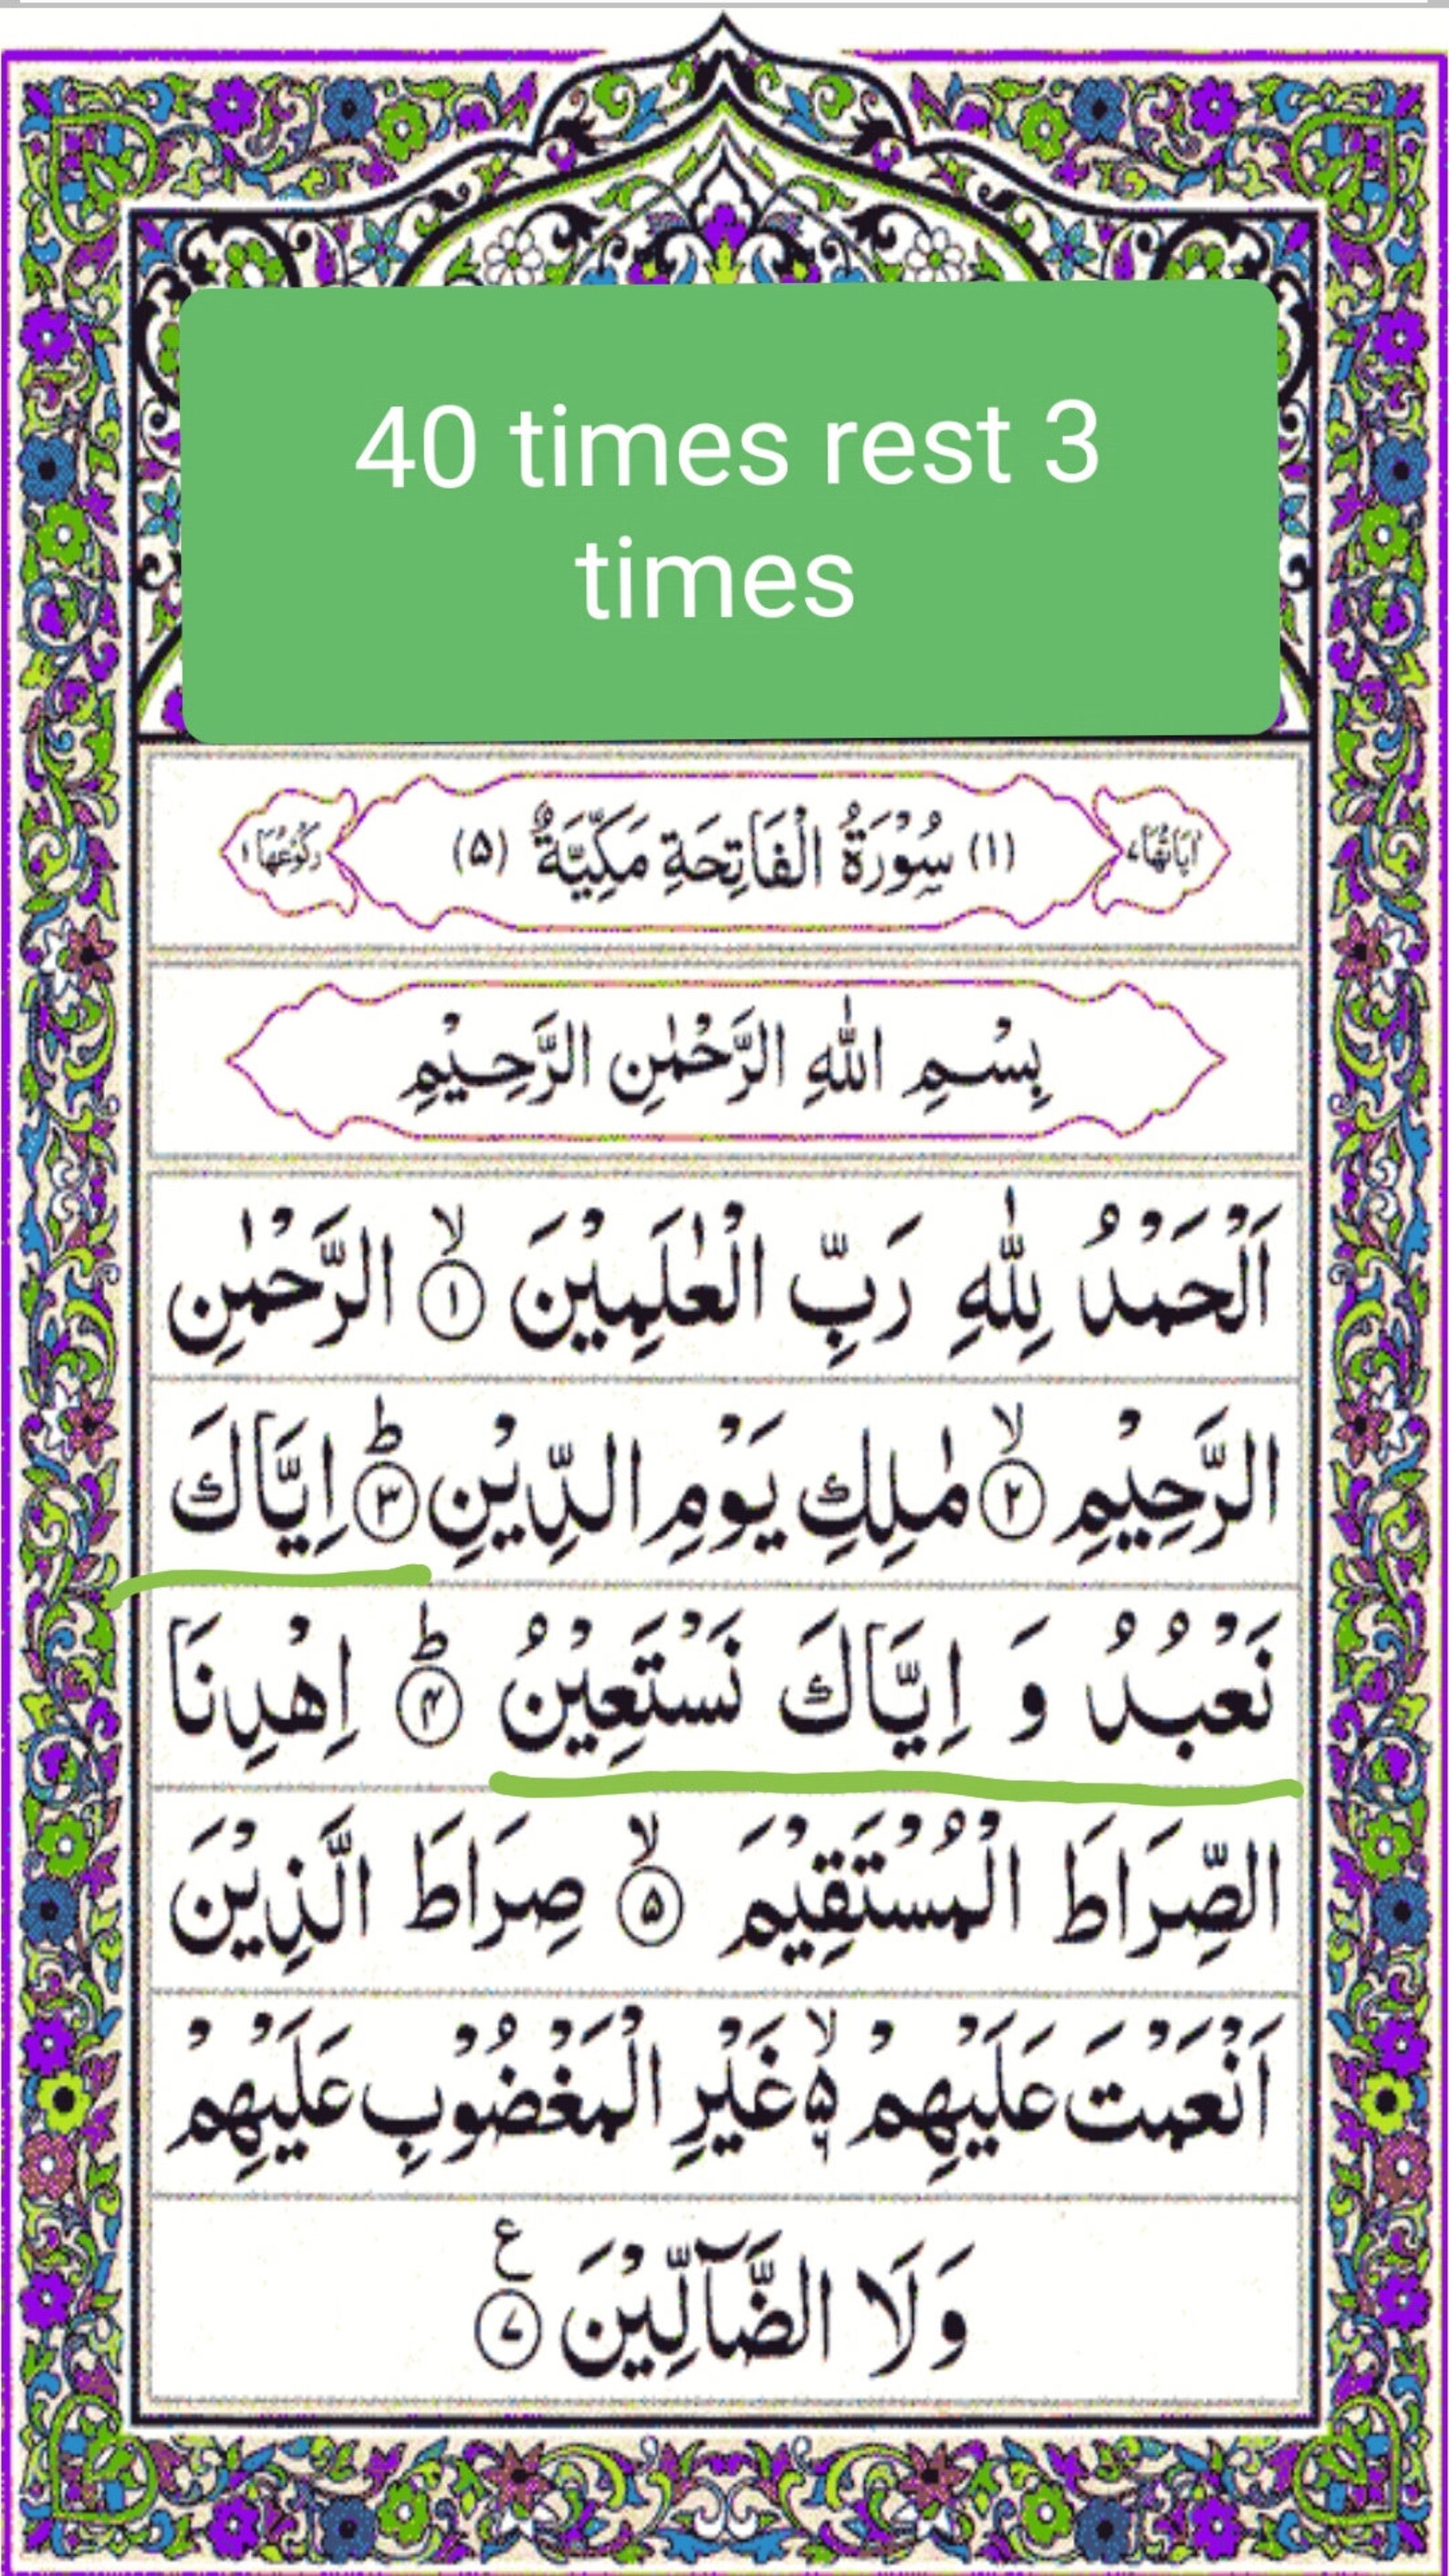 40 times rest 3
times
اٰیَاتُهَا ٧ (١) سُوْرَةُ الْفَاتِحَةِ مَكِّيَّةٌ (۵) رُكُوْعُهَا ١
بِسْمِ اللّٰهِ الرَّحْمٰنِ الرَّحِيْمِ
اَلْحَمْدُ لِلّٰهِ رَبِّ الْعٰلَمِيْنَ ۙ ﴿١﴾ الرَّحْمٰنِ
الرَّحِيْمِ ۙ ﴿٢﴾ مٰلِكِ يَوْمِ الدِّيْنِ ؕ ﴿٣﴾ اِيَّاكَ
نَعْبُدُ وَ اِيَّاكَ نَسْتَعِيْنُ ؕ ﴿۴﴾ اِهْدِنَا
الصِّرَاطَ الْمُسْتَقِيْمَ ۙ ﴿۵﴾ صِرَاطَ الَّذِيْنَ
اَنْعَمْتَ عَلَيْهِمْ ۙ۵ ۶ غَيْرِ الْمَغْضُوْبِ عَلَيْهِمْ
وَلَا الضَّآلِّيْنَ ع ﴿٧﴾